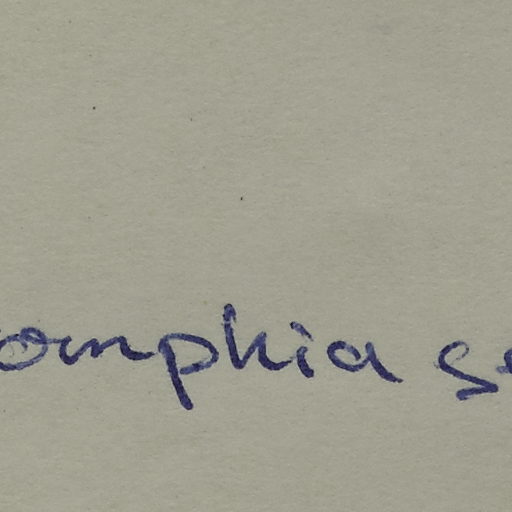 omphia se